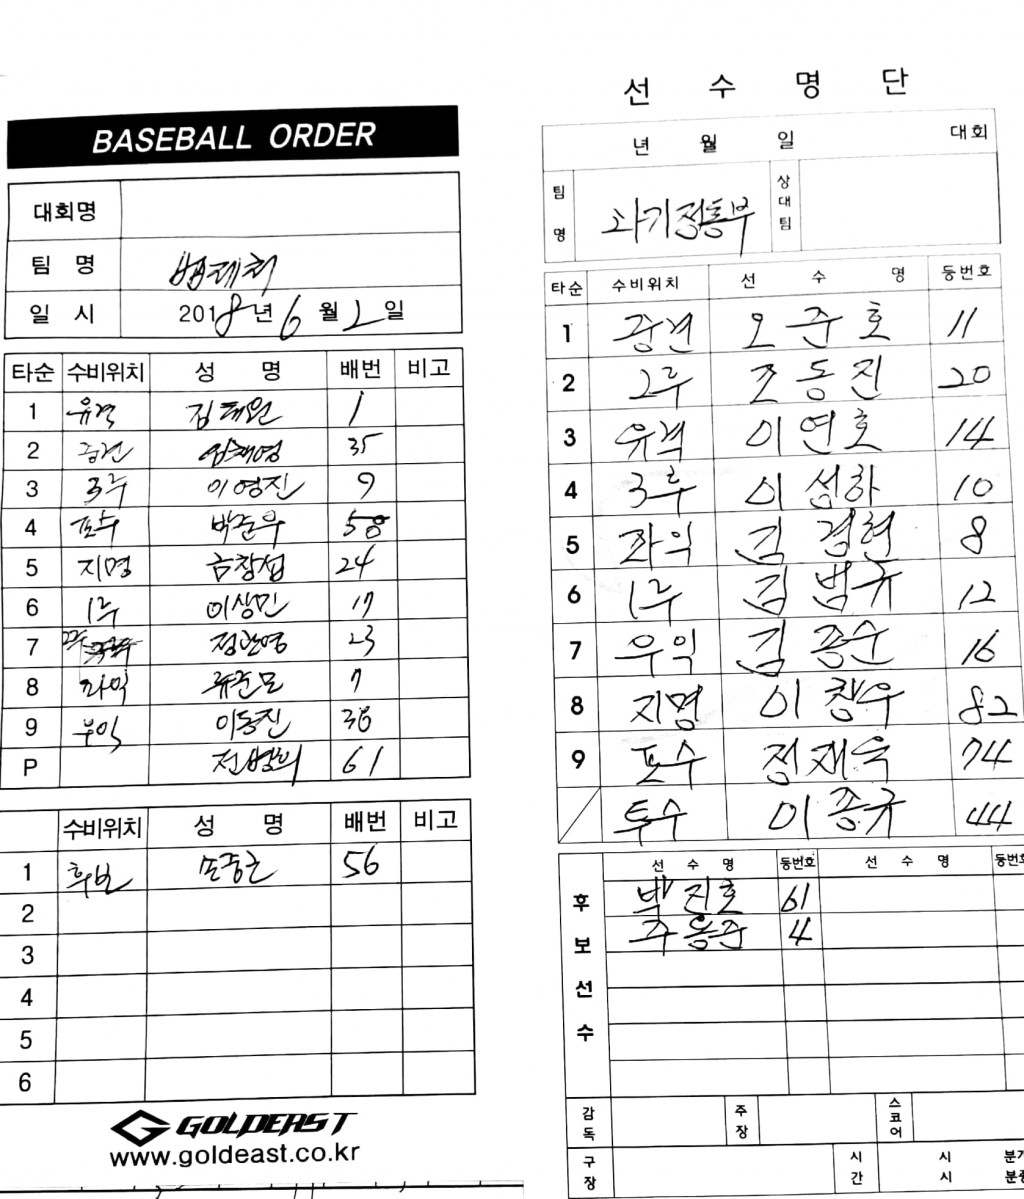 BASEBALL ORDER
대회명
팀 명 법제처
일 시 2018년 6월 2일
타순 수비위치 성 명 배번 비고
1 유격 김태원 1
2 중견 임채영 35
3 3루 이영진 9
4 포수 박준우 58
5 지명 금창섭 24
6 1루 이상민 17
7 2루 정관영 23
8 좌익 류준모 7
9 우익 이동진 36
P 전범의 61
수비위치 성 명 배번 비고
1 후보 56
2
3
4
5
6
GOLDEAST
www.goldeast.co.kr
선 수 명 단
년 월 일 대회
팀명 과기정통부 상대팀
타순 수비위치 선 수 명 등번호
1 중견 오준호 11
2 2루 조동진 20
3 유격 이연호 14
4 3루 이성하 10
5 좌익 김경현 8
6 1루 김범규 12
7 우익 김종순 16
8 지명 이창우 82
9 포수 정재욱 74
투수 이종규 44
후보선수
선 수 명 등번호 선 수 명 등번호
박진호 61
주용준 4
감독 주장 스코어
구장 시간 시 분
시 분